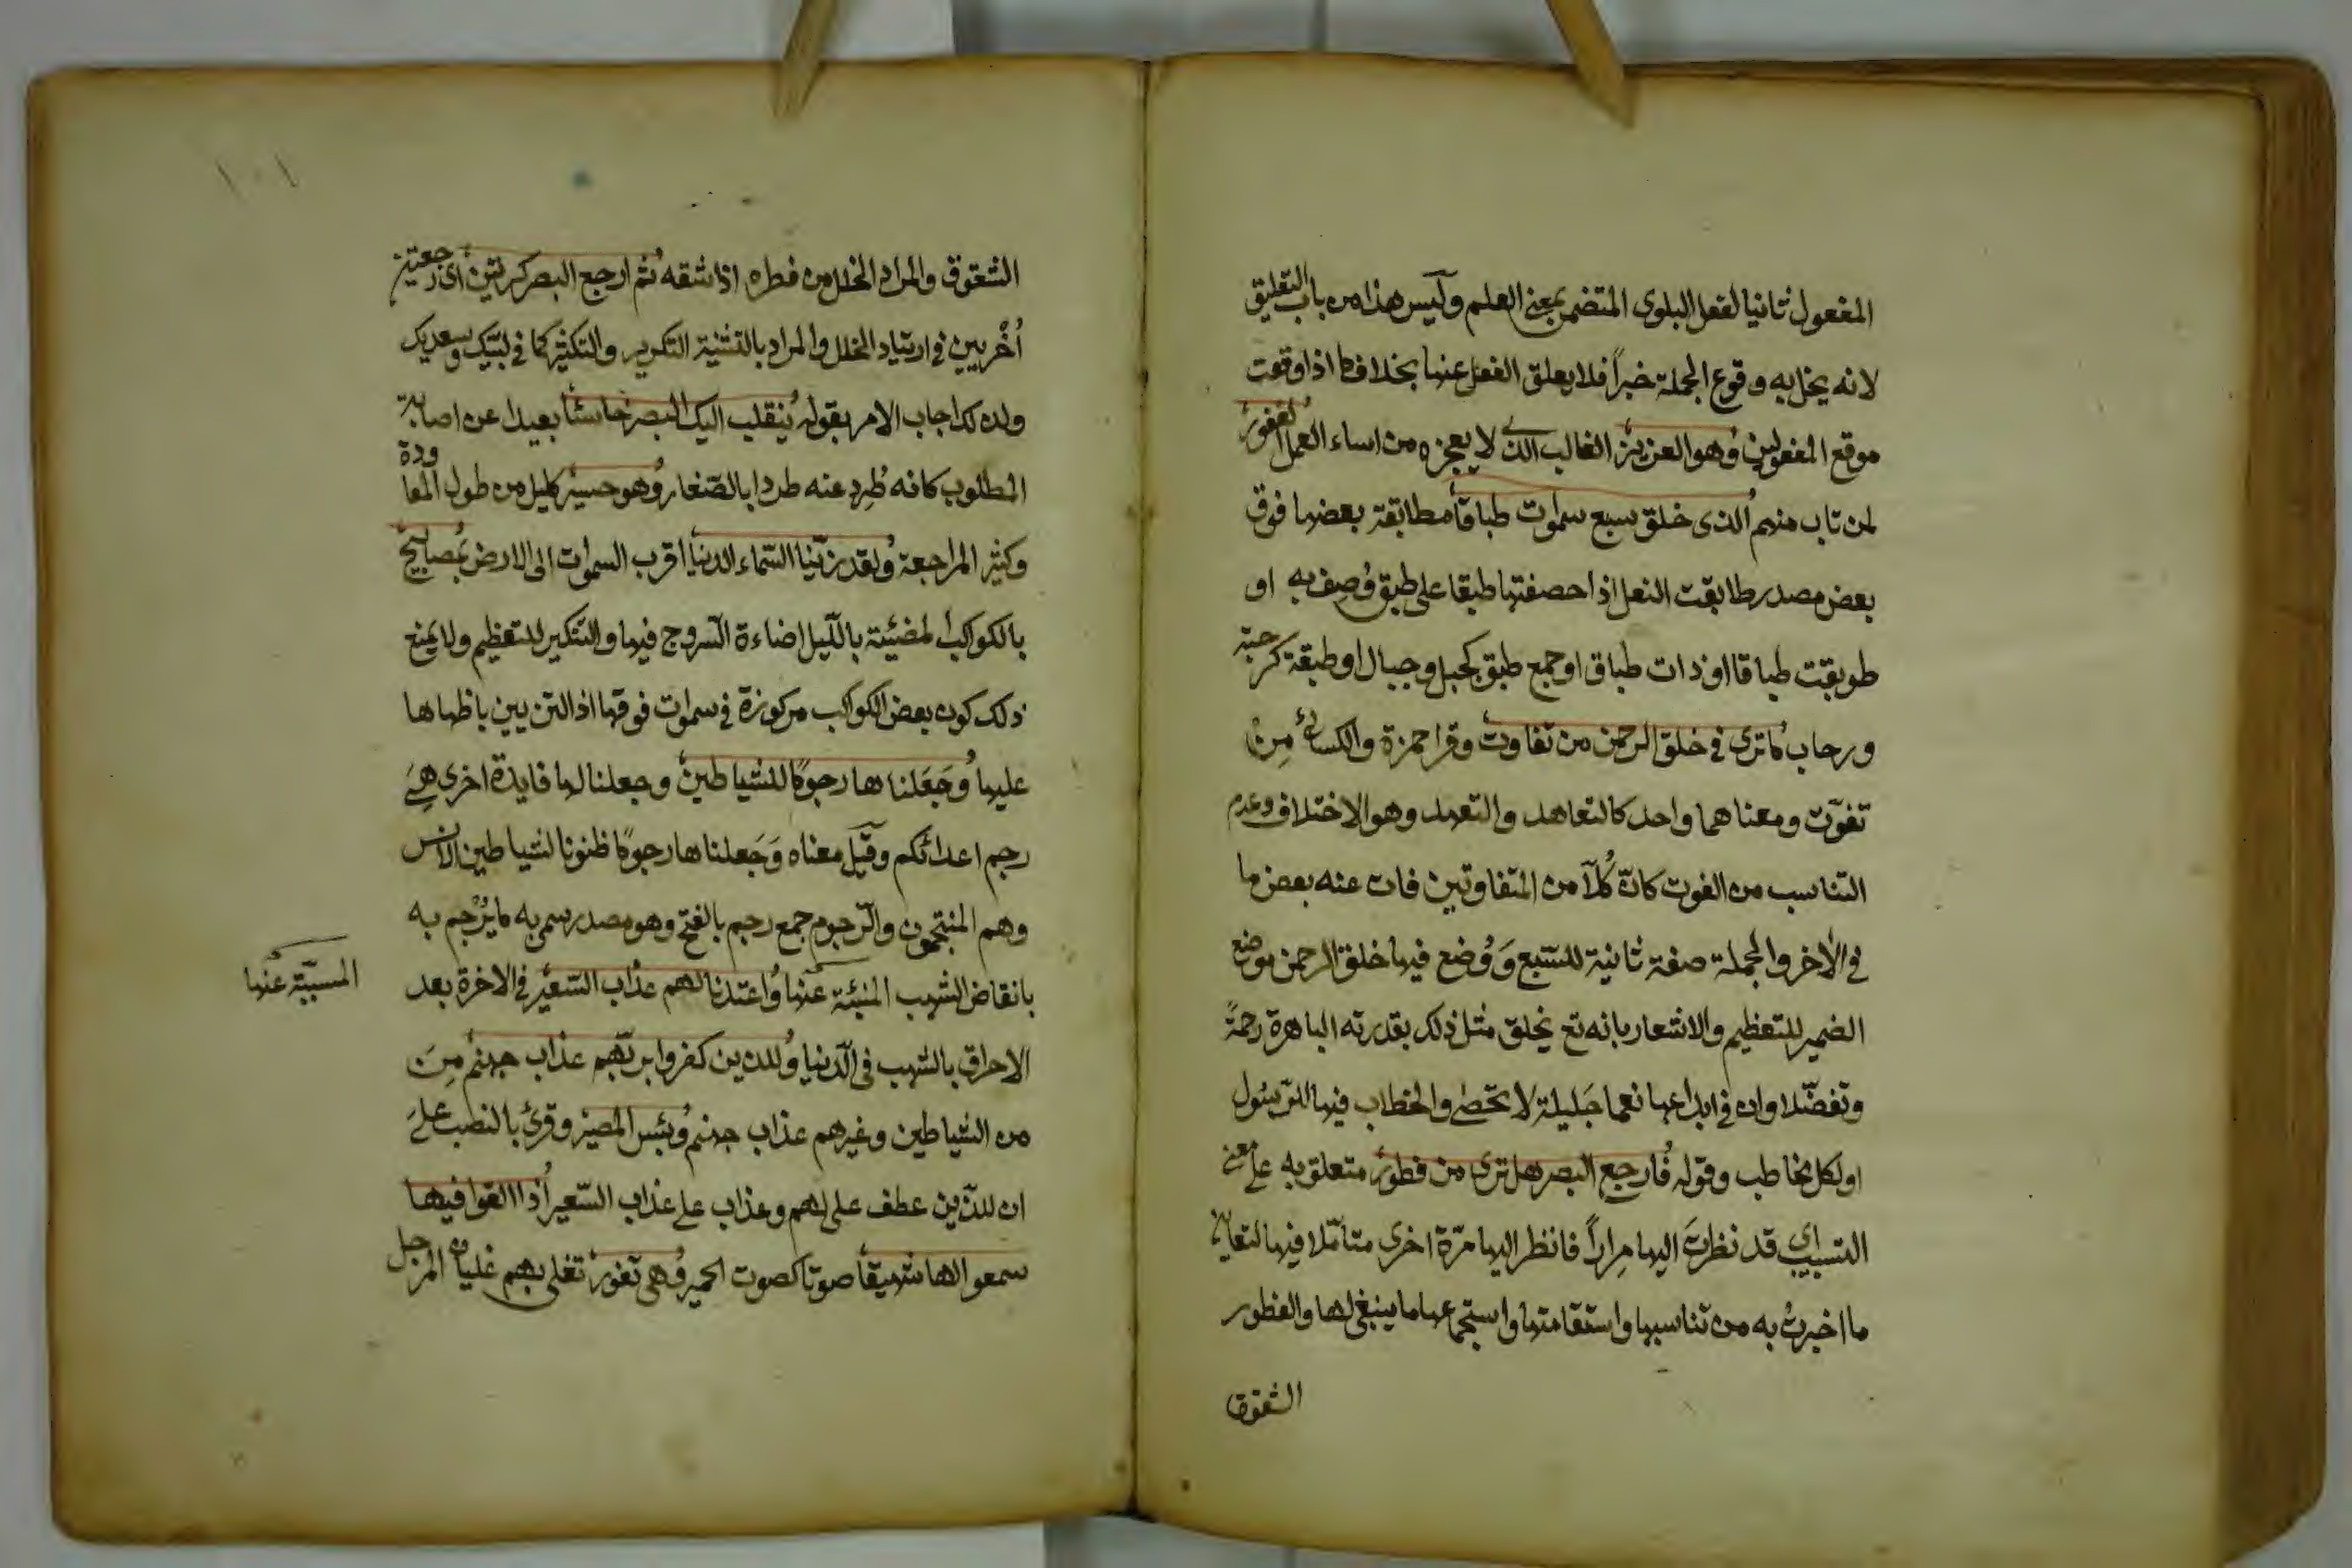 المفعول ثانيا لفعل البلوى المتضمن بمعنى العلم وليس هذا من باب التعليق
لانه يخل به وقوع الجملة خبراً فلا يعلق الفعل عنها بخلاف ما اذا وقعت
موقع المفعولين وهو العزيز الغالب الذى لا يعجزه من اساء العمل الغفور
لمن تاب منهم الذى خلق سبع سموات طباقا مطابقة بعضها فوق
بعض مصدر طابقت النعل اذا حصفتها طبقا على طبق وُصِف به او
طوبقت طباقا او ذات طباق او جمع طبق كجبل وجبال او طبقة كرحبة
ورحاب ما ترى فى خلق الرحمن من تفاوت وقرا حمزة والكسائى من
تفوّت ومعناهما واحد كالتعاهد والتعهد وهو الاختلاف وعدم
التناسب من الفوت كانّ كُلّا من المتفاوتين فات عنه بعض ما
فى الاخر والجملة صفة ثانية للسّبع وَوُضع فيها خلق الرحمن موضع
الضمير للتعظيم والاشعار بانه تع يخلق مثل ذلك بقدرته الباهرة رحمةً
وتفضّلا وان فى ابداعها نعما جَليلة لا تحصى والخطاب فيها للرّسُول
او لكل مخاطب وقوله فارجع البصر هل ترى من فطور متعلق به على معنى
التسبيب اى قد نظرتَ اليها مِراراً فانظر اليها مرّة اخرى متأمّلا فيها لتعاين
ما اخبرتُ به من تناسبها واستقامتها واستجماعها ما ينبغى لها والفطور
الشقوق
١٠١
الشقوق والمراد الخلل من فطره اذا شقه ثم ارجع البصر كرتين اى رجعتين
أُخْريين فى ارتياد الخلل والمراد بالتثنية التكرير والتكثير كما فى لبّيك وسعديك
ولذلك اجاب الامر بقوله ينقلب اليك البصر خاسئا بعيدا عن اصابة
المطلوب كانه طُرِد عنه طردا بالصّغار وهو حسير كليل من طول المعاودة
وكثير المراجعة ولقد زيّنا السّماء الدنيا اقرب السموات الى الارض بمصابيح
بالكواكب المضيئة بالّليل اضاءة السّروج فيها والتنكير للتعظيم ولا يمنع
ذلك كون بعض الكواكب مركوزة فى سموات فوقها اذ التزيين باظهاها
عليها وَجَعَلنا ها رجومًا للشياطين وجعلنا لها فايدة اخرى هِىَ
رجم اعدائكم وقيَل معناه وَجَعلنا ها رجومًا ظنونا لشياطين الانس
وهم المنجّمون والرّجوم جمع رجم بالفتح وهو مصدر سمى به ما يُرْجم به
بانقاض الشهب المنبئة عنها واعتدنا لهم عذاب السّعير فى الاخرة بعد
المسبّبة عنها
الاحراق بالشهب فى الدّنيا وللذين كفروا بربّهم عذاب جهنم مِنَ
من الشياطين وغيرهم عذاب جهنم وبئس المصير وقرئ بالنصب علىَ
ان للذين عطف على لهم وعذاب على عذاب السّعير اذا القوا فيها
سمعوا لها شهيقا صوتا كصوت الحمير وهى تفور تغلى بهم غليان المرجل